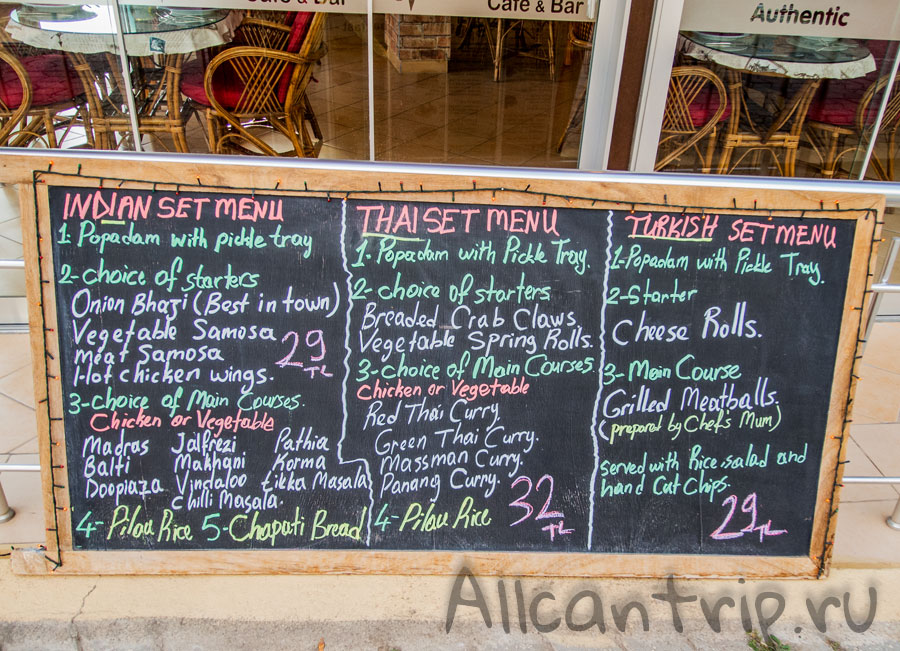 Cafe & Bar
Cafe & Bar
Authentic
INDIAN SET MENU
1- Popadam with pickle tray
2- choice of starters
Onion Bhaji (Best in town)
Vegetable Samosa
meat Samosa
Hot chicken wings.
29 TL
3- choice of Main Courses.
Chicken or Vegetable
Madras Jalfrezi Pathia
Balti Makhani Korma
Doopiaza Vindaloo tikka Masala
chilli Masala.
4- Pilau Rice 5- Chapati Bread
THAI SET MENU
1- Popadam with Pickle Tray.
2- choice of starters
Breaded Crab Claws
Vegetable Spring Rolls.
3- choice of Main Courses
Chicken or Vegetable
Red Thai Curry
Green Thai Curry.
Massman Curry.
Panang Curry.
4- Pilau Rice
32 TL
TURKISH SET MENU
1- Popadam with Pickle Tray.
2- Starter
Cheese Rolls.
3- Main Course
Grilled Meatballs.
(prepared by Chef's Mum)
served with Rice, salad and
hand Cut Chips.
29 TL
Allcantrip.ru